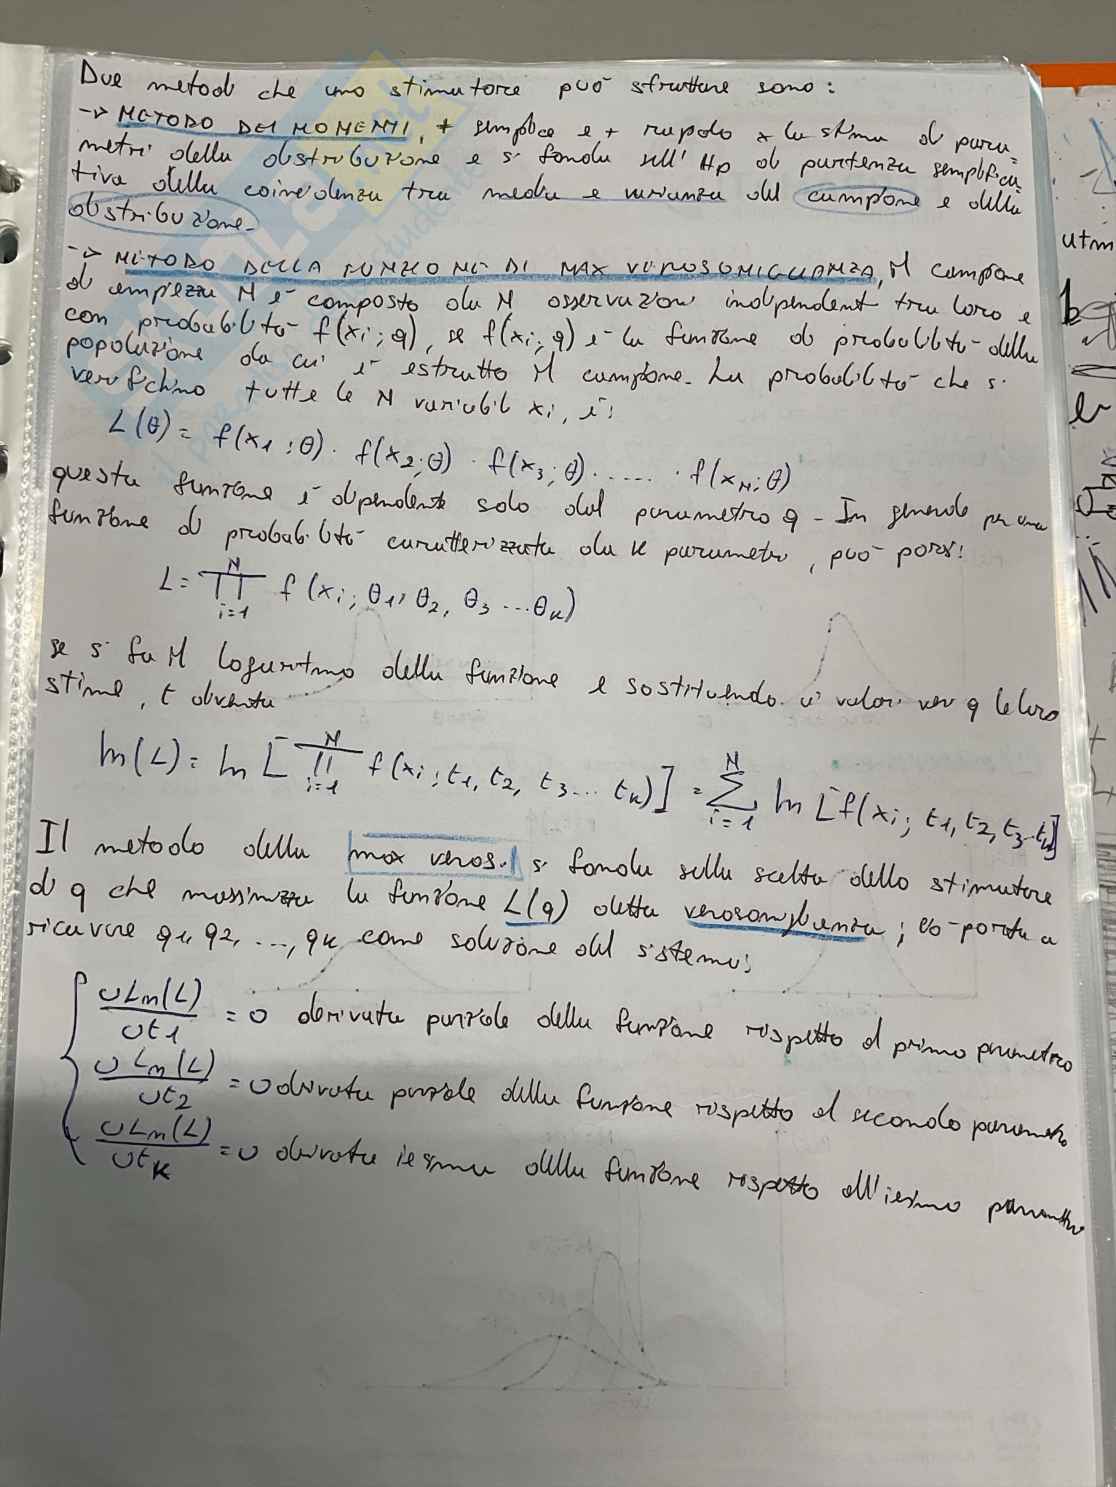 Due metodi che uno stimatore può sfruttare sono:
-> METODO DEI MOMENTI, + semplice e + rapido x la stima di para=
metri della distribuzione e si fonda sull' Hp di partenza semplifica
tiva della coincidenza tra media e varianza del campione e della
distribuzione.
-> METODO DELLA FUNZIONE DI MAX VEROSOMIGLIANZA, il campione
di ampiezza N è composto da N osservazioni indipendenti tra loro e
con probabilità f(xi; q), se f(xi; q) è la funzione di probabilità della
popolazione da cui è estratto il campione. La probabilità che si
verifichino tutte le N variabili xi, è:
L(θ) = f(x1; θ) · f(x2; θ) · f(x3; θ) · ..... · f(xN; θ)
questa funzione è dipendente solo dal parametro q - In generale per una
funzione di probabilità caratterizzata da k parametri, può porsi:
L = ∏ i=1 N f(xi; θ1, θ2, θ3 ... θk)
se si fa il logaritmo della funzione e sostituendo ai valori ver q le loro
stime, t diventa
ln(L) = ln [∏ i=1 N f(xi; t1, t2, t3... tk)] = ∑ i=1 N ln [f(xi; t1, t2, t3..tk)]
Il metodo della max veros. si fonda sulla scelta dello stimatore
di q che massimizza la funzione L(q) detta verosomiglianza; ciò porta a
ricavare q1, q2, ..., qk come soluzione del sistema:
∪Ln(L)/∪t1 = 0 derivata parziale della funzione rispetto al primo parametro
∪Ln(L)/∪t2 = 0 derivata parziale della funzione rispetto al secondo parametro
∪Ln(L)/∪tk = 0 derivata iesima della funzione rispetto all'iesimo parametro